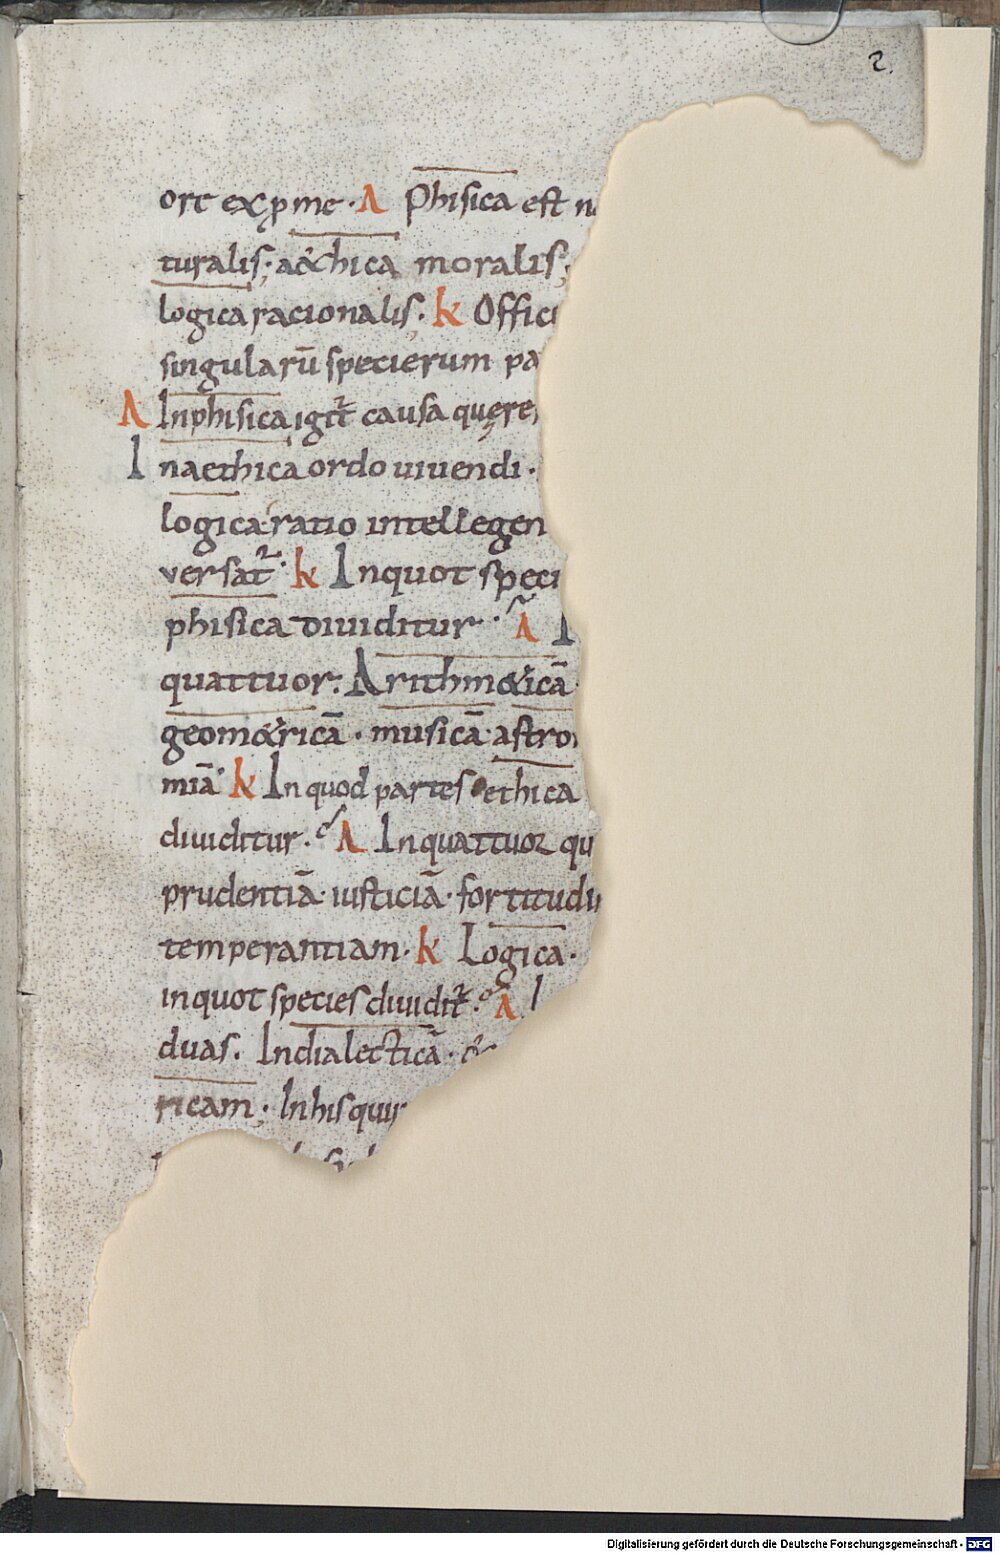 2.
ort exp̱me · A Phisica est n
turalis; aethica moralis;
logica racionalis. k Offici
singularū specierum pa
A In phisica igit᷑ causa quęre
In aethica ordo uiuendi ·
logica ratio intellegen
versat᷑. k In quot speci
phisica diuiditur. A I
quattuor. Arithmeticā
geometricā · musicā astro
miā. k In quod partes ethica
diuiditur. A In quattuor qu
prudentiā · iusticiā · fortitudi
temperantiam. k Logica.
in quot species diuidit᷑. A I
duas. In dialecticā ·
ricam; In his quir
Digitalisierung gefördert durch die Deutsche Forschungsgemeinschaft - DFG